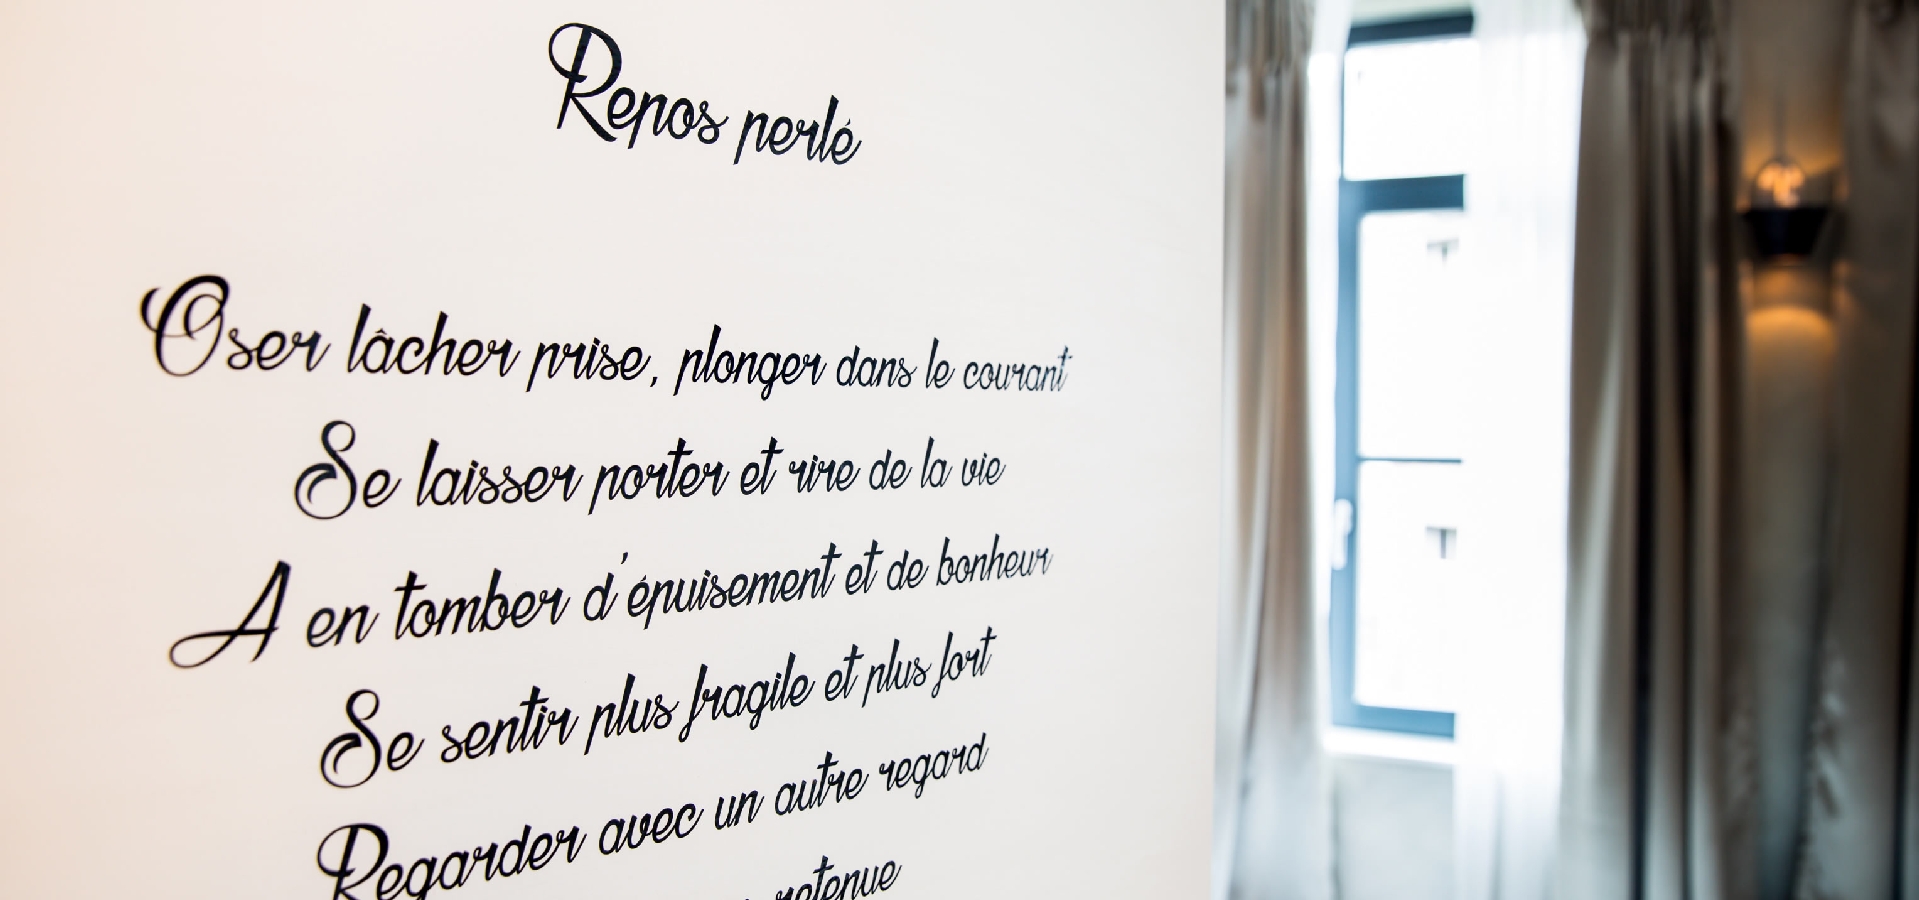 Repos perlé
Oser lâcher prise, plonger dans le courant
Se laisser porter et rire de la vie
A en tomber d'épuisement et de bonheur
Se sentir plus fragile et plus fort
Regarder avec un autre regard
retenue